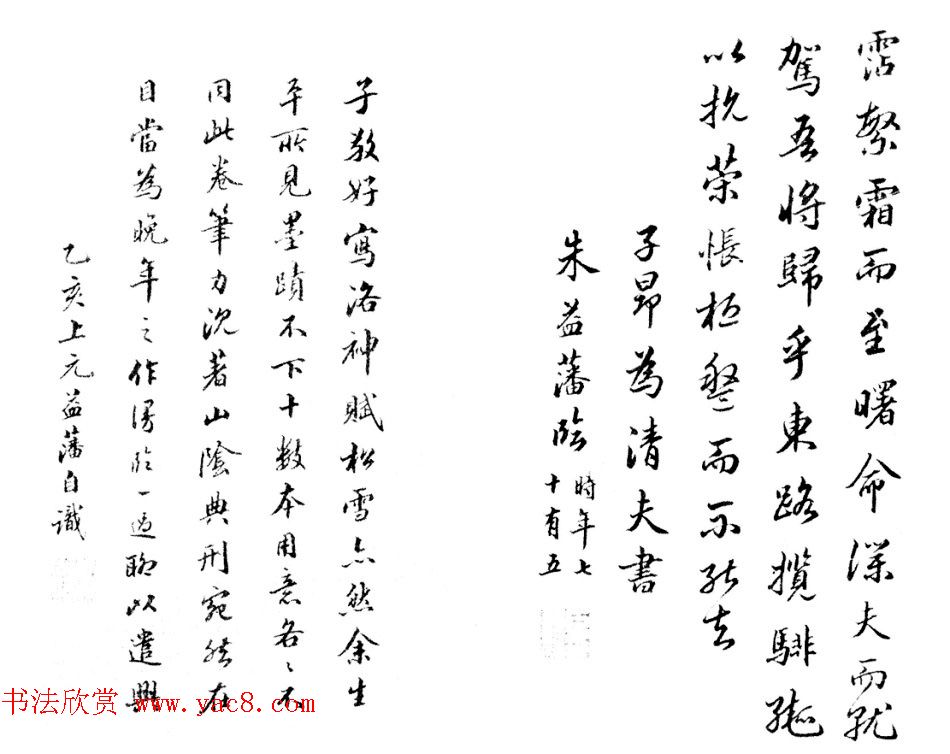 霑繁霜而至曙命僕夫而就
駕吾將歸乎東路攬騑轡
以抗策悵桓盤而不能去
子昂為清夫書
朱益藩臨
時年七
十有五
子敬好寫洛神賦松雪亦然余生
平所見墨蹟不下十數本用意各〻不
同此卷筆力沉著山陰典刑宛然在
目當為晚年之作漫臨一過聊以遣興
乙亥上元益藩自識
书法欣赏 www.yac8.com